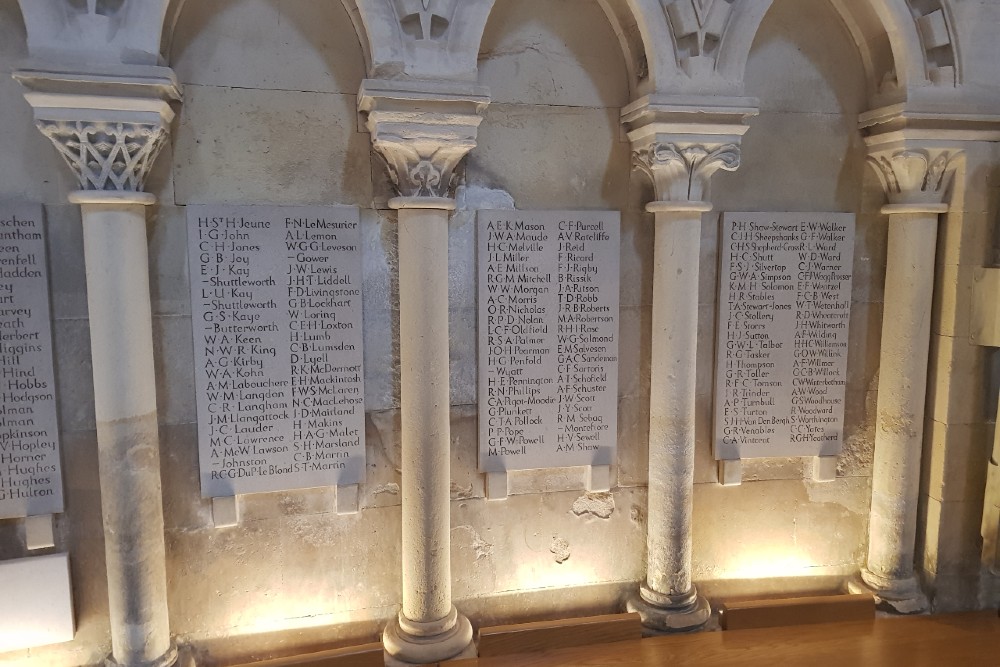 schen
Grant
een
enfell
Hadden
arvey
eath
Herbert
Higgins
Hill
Hind
Hobbs
Hodgson
olman
olman
opkinson
V·Hopley
Horner
Hughes
Hughes
G·Hulton
H·Sᵀ H·Jeune
I·G·John
C·H·Jones
G·B·Joy
E·J·Kay
-Shuttleworth
L·U·Kay
-Shuttleworth
G·S·Kaye
-Butterworth
W·A·Keen
N·W·R·King
A·G·Kirby
W·A·Kohn
A·M·Labouchere
W·M·Langdon
C·R·Langham
J·M·Llangattock
J·C·Lauder
M·C·Lawrence
A·McW·Lawson
-Johnston
R·C·G·DuP·LeBlond
F·N·LeMesurier
A·L·Lemon
W·G·G·Leveson
-Gower
J·W·Lewis
J·H·T·Liddell
F·D·Livingstone
G·B·Lockhart
W·Loring
C·E·H·Loxton
H·Lumb
C·B·Lumsden
D·Lyell
R·K·McDermott
E·H·Mackintosh
F·W·S·McLaren
N·C·MacLehose
J·D·Maitland
H·Makins
H·A·G·Malet
S·H·Marsland
C·B·Martin
S·T·Martin
A·E·K·Mason
J·W·A·Maude
H·C·Melville
J·L·Miller
A·E·Millson
R·G·M·Mitchell
W·W·Morgan
A·C·Morris
O·R·Nicholas
R·P·D·Nolan
L·C·F·Oldfield
R·S·A·Palmer
J·O·H·Poorman
H·G·Penfold
-Wyatt
H·E·Pennington
R·N·Phillips
C·A·Pigot-Moodie
G·Plunkett
C·T·A·Pollock
P·P·Pope
G·F·W·Powell
M·Powell
C·F·Purcell
A·V·Ratcliffe
J·Reid
F·Ricard
F·J·Rigby
B·Rissik
J·A·Ritson
T·D·Robb
J·R·B·Roberts
M·A·Robertson
R·H·I·Rose
W·G·Salmond
E·M·Salvesen
G·A·C·Sandeman
C·F·Sartoris
A·T·Schofield
A·F·Schuster
J·W·Scott
J·Y·Scott
R·M·Sebag
-Montefiore
H·V·Sewell
A·M·Shaw
P·H·Shaw-Stewart
C·J·H·Sheepshanks
H·C·Shutt
F·S·J·Silvertop
G·W·A·Simpson
K·M·H·Solomon
R·H·Stables
T·A·Stewart-Jones
J·C·Stollery
F·E·Storrs
H·J·Sutton
G·W·L·Talbot
R·G·Tasker
H·Thompson
G·R·Toller
R·F·C·Tomson
J·R·Trinder
A·P·Turnbull
E·S·Turton
S·J·H·Van Den Bergh
G·R·Venables
G·A·Vinter
E·W·Walker
O·F·Walker
R·L·Ward
W·D·Ward
C·J·Warner
F·E·Weatherby
F·C·B·West
W·T·Wetenhall
J·H·Whitworth
A·F·Wilding
H·H·C·Williams
G·O·W·Willink
A·F·Wilmer
G·C·B·Willock
C·W·Winterbotham
A·W·Wood
G·S·Woodhouse
R·Woodward
S·Worthington
C·C·Yates
R·G·H·Yeatherd